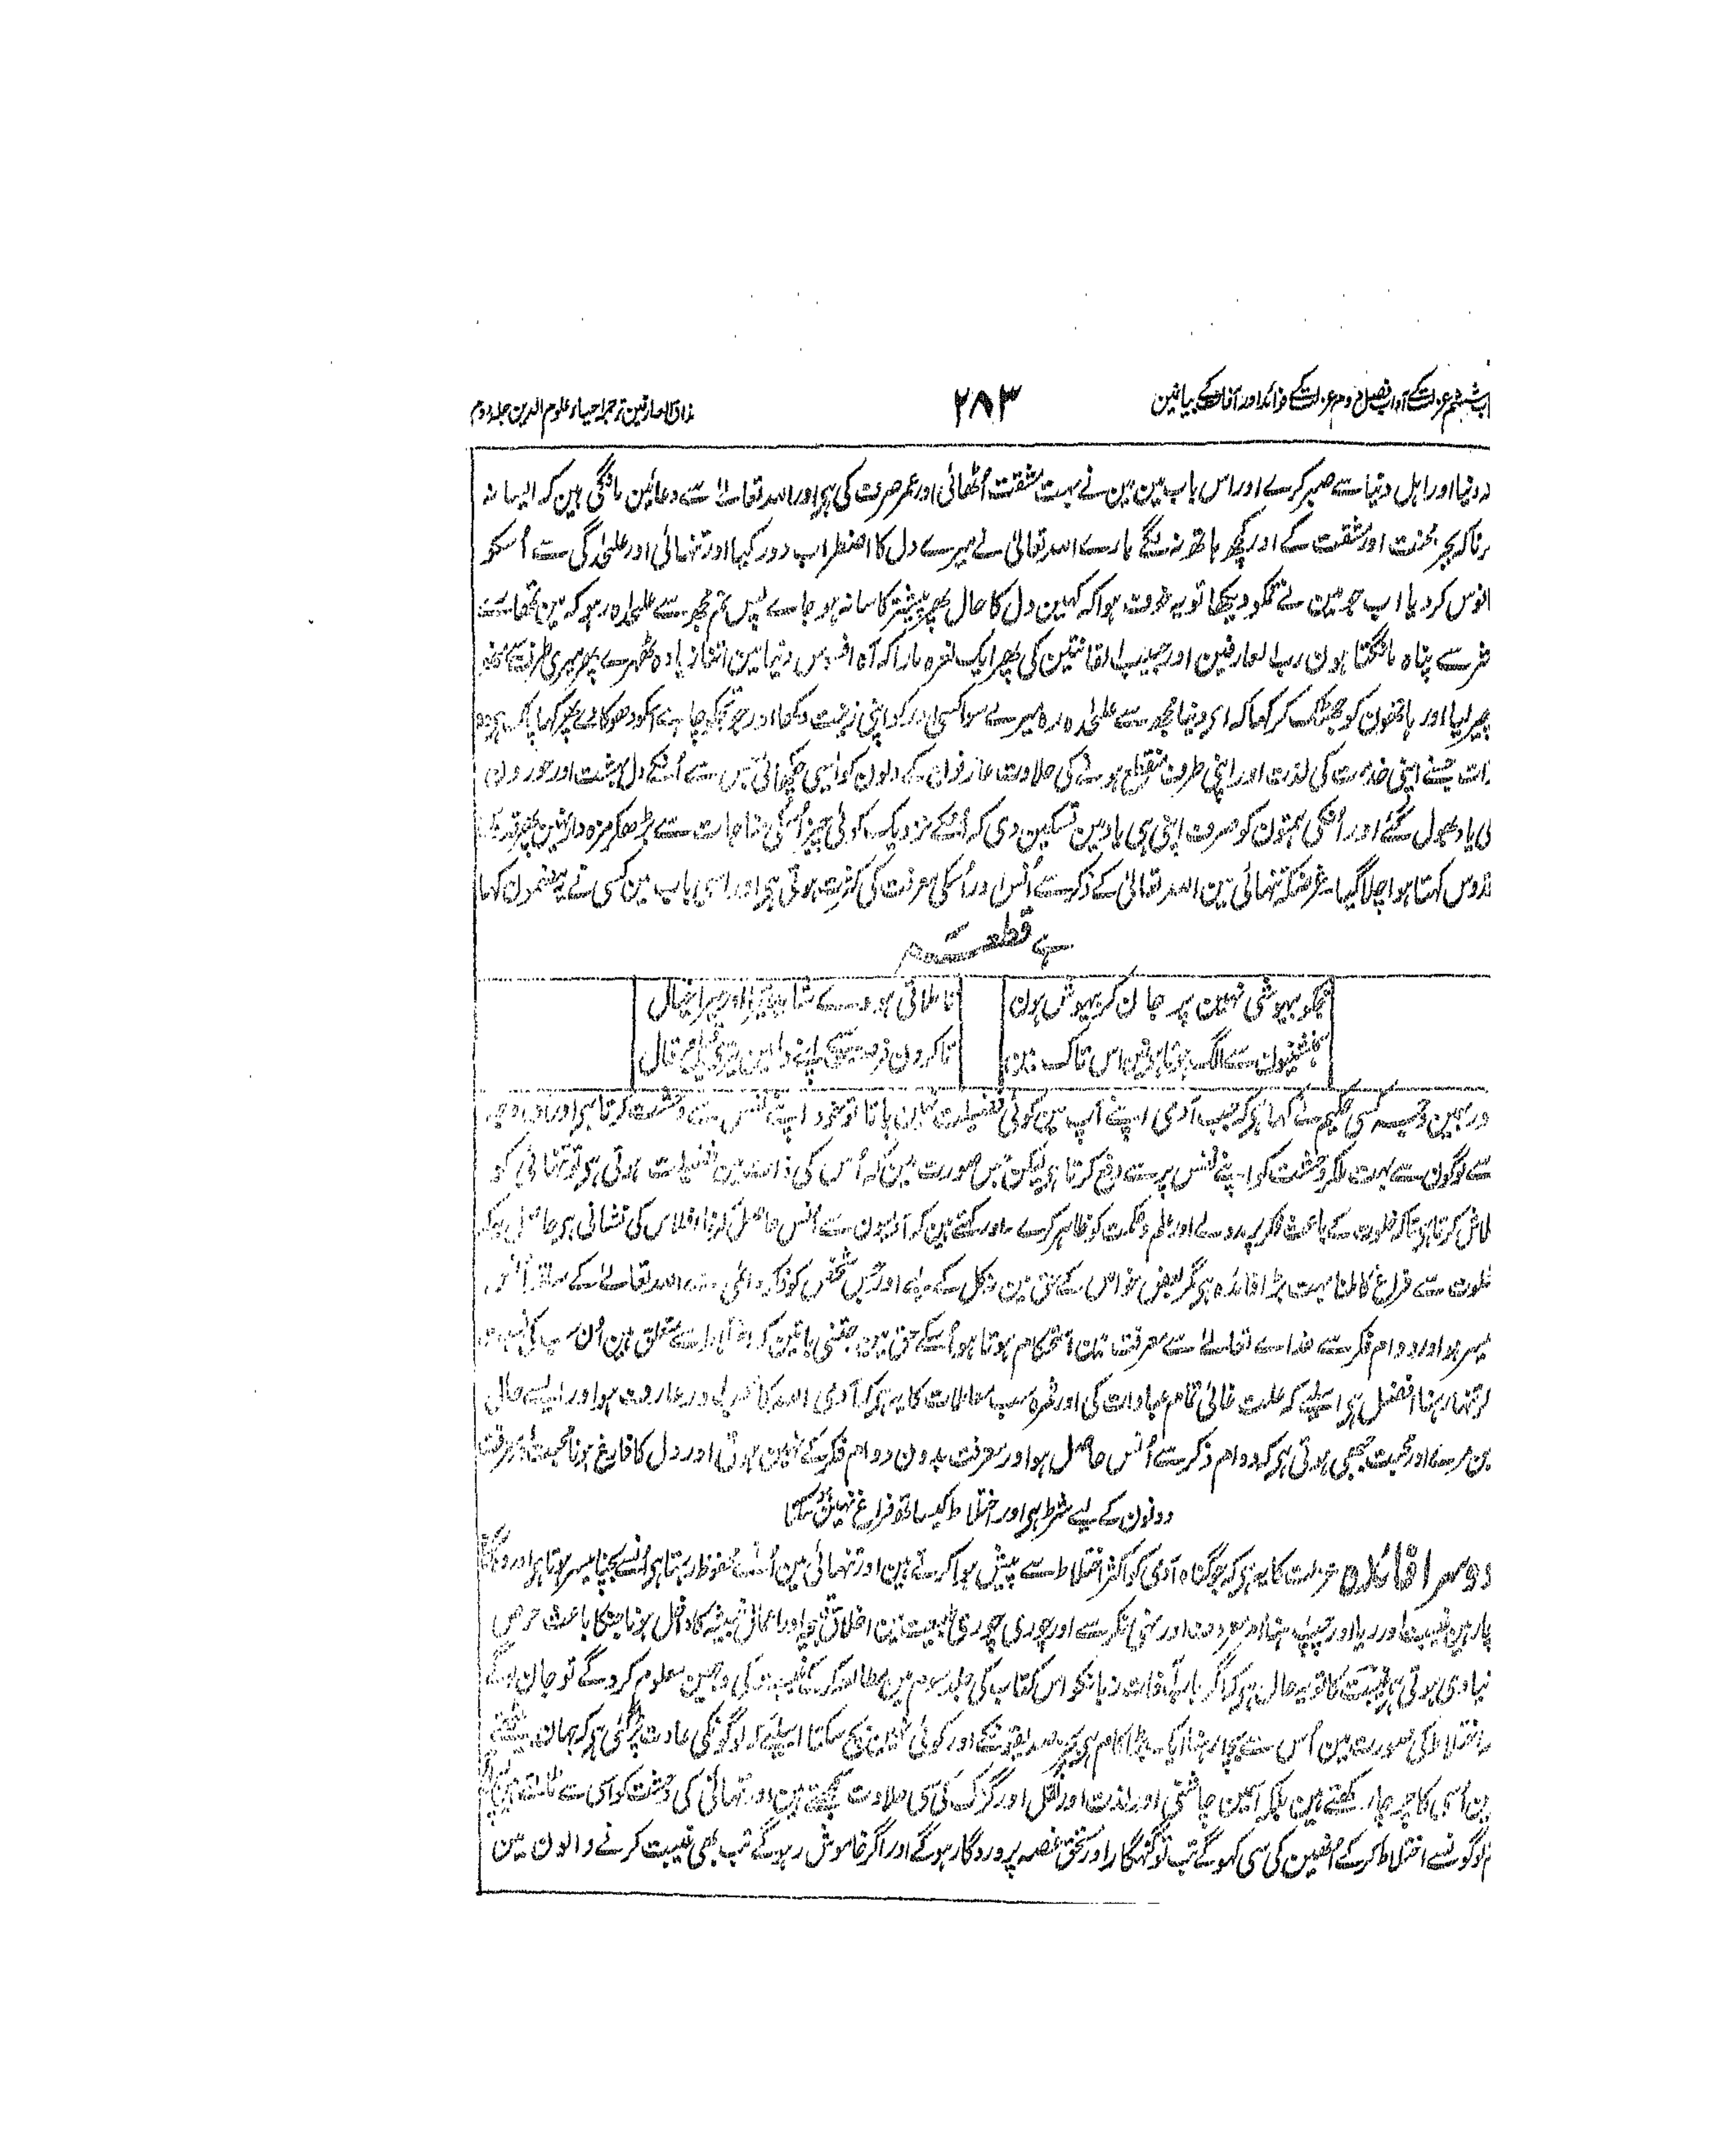 باب ششم عزلت کے آداب فصل دوم عزلت کے فوائد اور آفات کے بیان مین
۲۸۳
مذاق العارفین ترجمہ احیاء علوم الدین جلد دوم
دنیا اور اہل دنیا سے صبر کرے اور اس باب مین مین نے بہت مشقت اُٹھائی اور عمر صرف کی ہی اور اللہ تعالےٰ سے دعائین مانگی ہین کہ ایسا نہ
کہ بجز محنت اور مشقت کے اور کچھ ہاتھ نہ لگے بارے اللہ تعالیٰ نے میرے دل کا اضطراب دور کیا اور تنہائی اور علیٰحدگی سے اُسکو
مانوس کر دیا اب جو مین نے تمکو دیکھا تو یہ خوف ہوا کہ کہین دل کا حال پھر پیشتر کا سا نہ ہو جاے پس تم مجھ سے علیٰحدہ رہو کہ مین تمھارے
شر سے پناہ مانگتا ہون رب العارفین اور حبیب القانتین کی پھر ایک نعرہ مارا کہ آہ افسوس دنیا مین اتنا زیادہ ٹھہرے پھر میری طرف سے منھ
پھیر لیا اور ہاتھون کو جھٹک کر کہا کہ ای دنیا مجھ سے علیٰحدہ رہ میرے سوا کسی اور کو اپنی زینت دکھا اور جو تجکو چاہے اسکو دھوکا دے پھر کہا پاک ہی وہ
ذات جسنے اپنی خدمت کی لذت اور اپنی طرف منقطع ہونے کی حلاوت عارفون کے دلون کو ایسی چکھائی جس سے اُنکے دل بہشت اور حورون
کی یاد بھول گئے اور اُنکی ہمتون کو صرف اپنی ہی یاد مین تسکین دی کہ اُنکے نزدیک کوئی چیز اُسکی مناجات سے بڑھکر مزہ دار نہین پھر قدوس
قدوس کہتا ہوا چلا گیا۔ غرضکہ تنہائی مین اللہ تعالیٰ کے ذکر سے اُنس اور اُسکی معرفت کی کثرت ہوتی ہی اور اسی باب مین کسی نے یہ مضمون کہا
ہے قطعہ
مجکو بیہوشی نہین پر جان کر بیہوش ہون تا ملاقی ہووے شاید تیرا اور میرا خیال
ہمنشینون سے الگ ہوتا ہون مین اس تاک مین تا کرون فرصت سے اپنے دل مین تیری قیل و قال
اور ہمین وجہ کسی حکیم نے کہا ہی کہ جب آدمی اپنے آپ مین کوئی فضیلت نہین پاتا تو خود اپنے نفس سے وحشت کرتا ہی اور اس وجہ
سے لوگون سے بہت ملکر وحشت کو اپنے نفس پر سے دفع کرتا ہی لیکن جس صورت مین کہ اُس کی ذات مین فضیلت ہوتی ہی تو تنہائی کو
تلاش کرتا ہی تاکہ خلوت کے باعث فکر پر مدد لے اور علم و حکمت کو ظاہر کرے۔ اور کہتے ہین کہ آدمیون سے اُنس حاصل کرنا افلاس کی نشانی ہی حاصل یہ کہ
خلوت سے فراغ کا ملنا بہت بڑا فائدہ ہی مگر بعض خواص کے حق مین نہ کل کے لیے اور جس شخص کو ذکر دائمی سے اللہ تعالےٰ کے ساتھ اُنس
میسر ہو اور دوام فکر سے خداے تعالےٰ سے معرفت مین استحکام ہوتا ہو اُسکے حق مین جتنی باتین کہ اختلاط سے متعلق ہین اُن سب کی نسبت
کر تنہا رہنا افضل ہی اسلیے کہ علت غائی تمام عبادات کی اور ثمرہ سب معاملات کا یہ ہی کہ آدمی اللہ کا محب اور عارف ہو اور ایسے حال
مین مرے اور محبت جبھی ہوتی ہی کہ دوام ذکر سے اُنس حاصل ہو اور معرفت بدون دوام فکر کے نہین ہوتی اور دل کا فارغ ہونا محبت اور معرفت
دونون کے لیے شرط ہی اور اختلاط کے ساتھ فراغ نہین ہو سکتا
دوسرا فائدہ عزلت کا یہ ہی کہ جو گناہ آدمی کو اکثر اختلاط سے پیش ہوا کرتے ہین اور تنہائی مین اُنسے محفوظ رہتا ہی اُنسے بچنا میسر ہوتا ہی اور وہ گناہ
چار ہین غیبت اور ریا اور چپ رہنا امر معروف اور نہی منکر سے اور چوری چوری طبیعت مین اخلاق اور اعمال خبیثہ کا دخل ہونا جنکا باعث حرص
دنیاوی ہوتی ہی غیبت کا تو یہ حال ہی کہ اگر باب آفات زبان کو اس کتاب کی جلد سوم مین مطالعہ کر کے غیبت کی وجہین معلوم کرو گے تو جان لو گے
کہ اختلاط کی صورت مین اُس سے بچا رہنا ایک بڑا کام ہی بجز صدیقون کے اور کوئی نہین بچ سکتا اسلیے کہ لوگونکی عادت پڑ گئی ہی کہ جہان بیٹھتے
ہین اسی کا چرچا رکھتے ہین بلکہ اسمین چاشنی اور لذت اور نقل اور گزک کی سی حلاوت سمجھتے ہین اور تنہائی کی وحشت کو اسی سے ٹالتے ہین پس
تم لوگونسے اختلاط کر کے اُنھین کی سی کہو گے تب تو گنہگار اور مستحق غصہ پروردگار ہو گے اور اگر خاموش رہو گے تب بھی غیبت کرنے والون مین